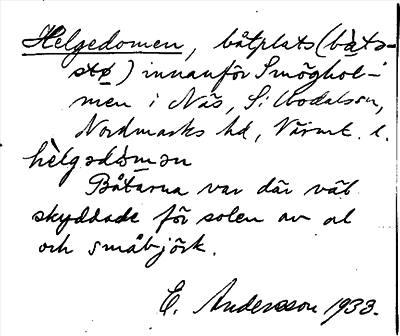 Helgedomen, båtplats (båts-
stø) innanför Smöghol-
men i Näs, S: Bodalssn,
Nordmarks hd, Värml. l.
hèlgədòmən
Båtarna var där väl
skyddade för solen av al
och småbjörk.
E. Andersson 1933.